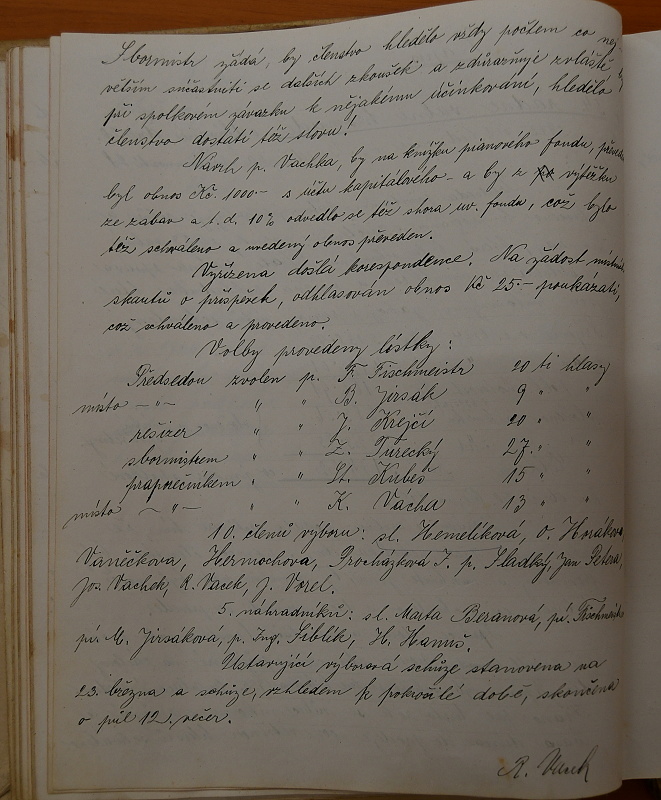 Sbormistr žádá, by členstvo hledělo vždy počtem co nej-
větším súčastniti se dalších zkoušek a zdůrazňuje zvláště by
při spolkovém závazku k nějakému účinkování, hledělo
členstvo dostáti též slovu!
Návrh p. Vachka, by na knížku pianového fondu,
byl obnos Kč. 1000.- s účtu kapitálového - a by z výtěžku
ze zábav a t.d. 10% odvedlo se též shora uv. fondu, což bylo
též schváleno a uvedený obnos převeden.
Vyřízena došlá korespondence. Na žádost
skautů o příspěvek, odhlasován obnos Kč 25.- poukázati,
což schváleno a provedeno.
Volby provedeny lístky:
Předsedou zvolen p. F. Tischmeistr 20 ti hlasy
místo -"- " " B. Jirsák 9 " "
režizer " " J. Krejčí 20 " "
sbormistrem " " Z. Turecký 27. " "
praporečníkem " " St. Kubeš 15 " "
místo -"- " " K. Vácha 13 " "
10. členů výboru: sl. Hemelíková, O. Horáková
Vaněčkova, Hermochova, Procházková F. p. Sladký, Jan Petera,
Jos. Vachek, R. Vacek, J. Vorel.
5. náhradníků: sl. Marta Beranová, pí.
pí. M. Jirsáková, p. Ing. Siblík, H. Hanuš.
Ustavující výborová schůze stanovena na
23. března a schůze, vzhledem k pokročilé době, skončena
o půl 12. večer.
R.